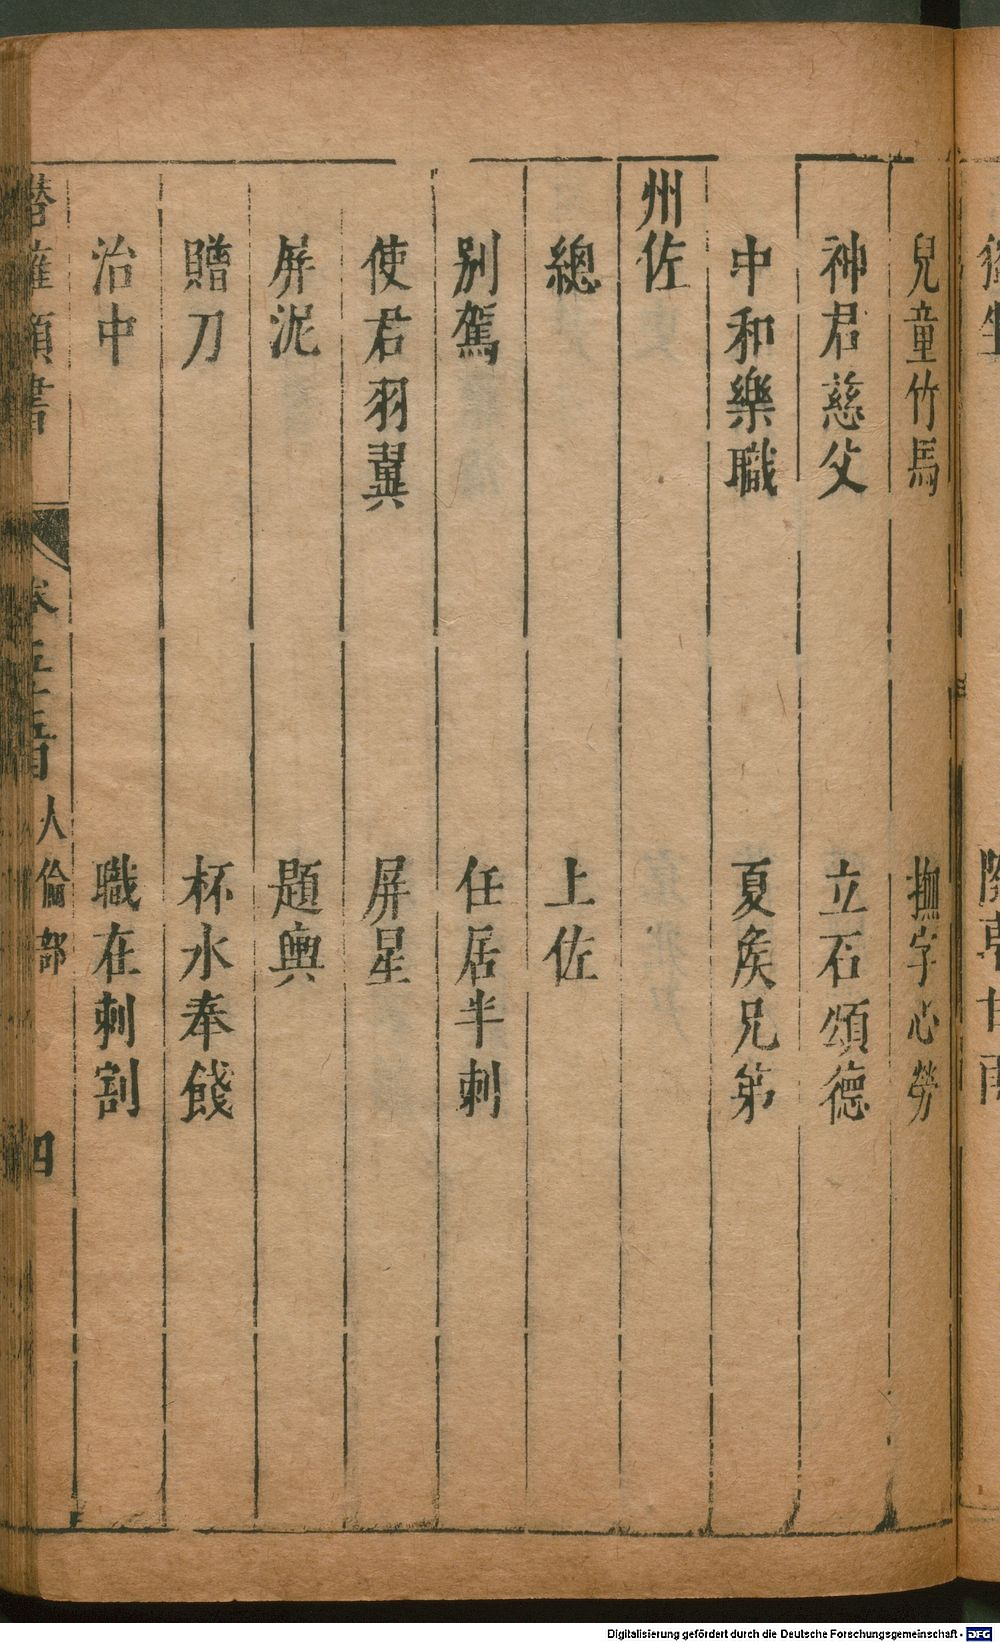 兒童竹馬　撫字心勞
神君慈父　立石頌德
中和樂職　夏矦兄第
州佐
總　上佐
別駕　任居半刺
使君羽翼　屏星
屏泥　題輿
贈刀　杯水奉餞
治中　職在刺割
類書　卷五十五目　人倫部　四
Digitalisierung gefördert durch die Deutsche Forschungsgemeinschaft - DFG